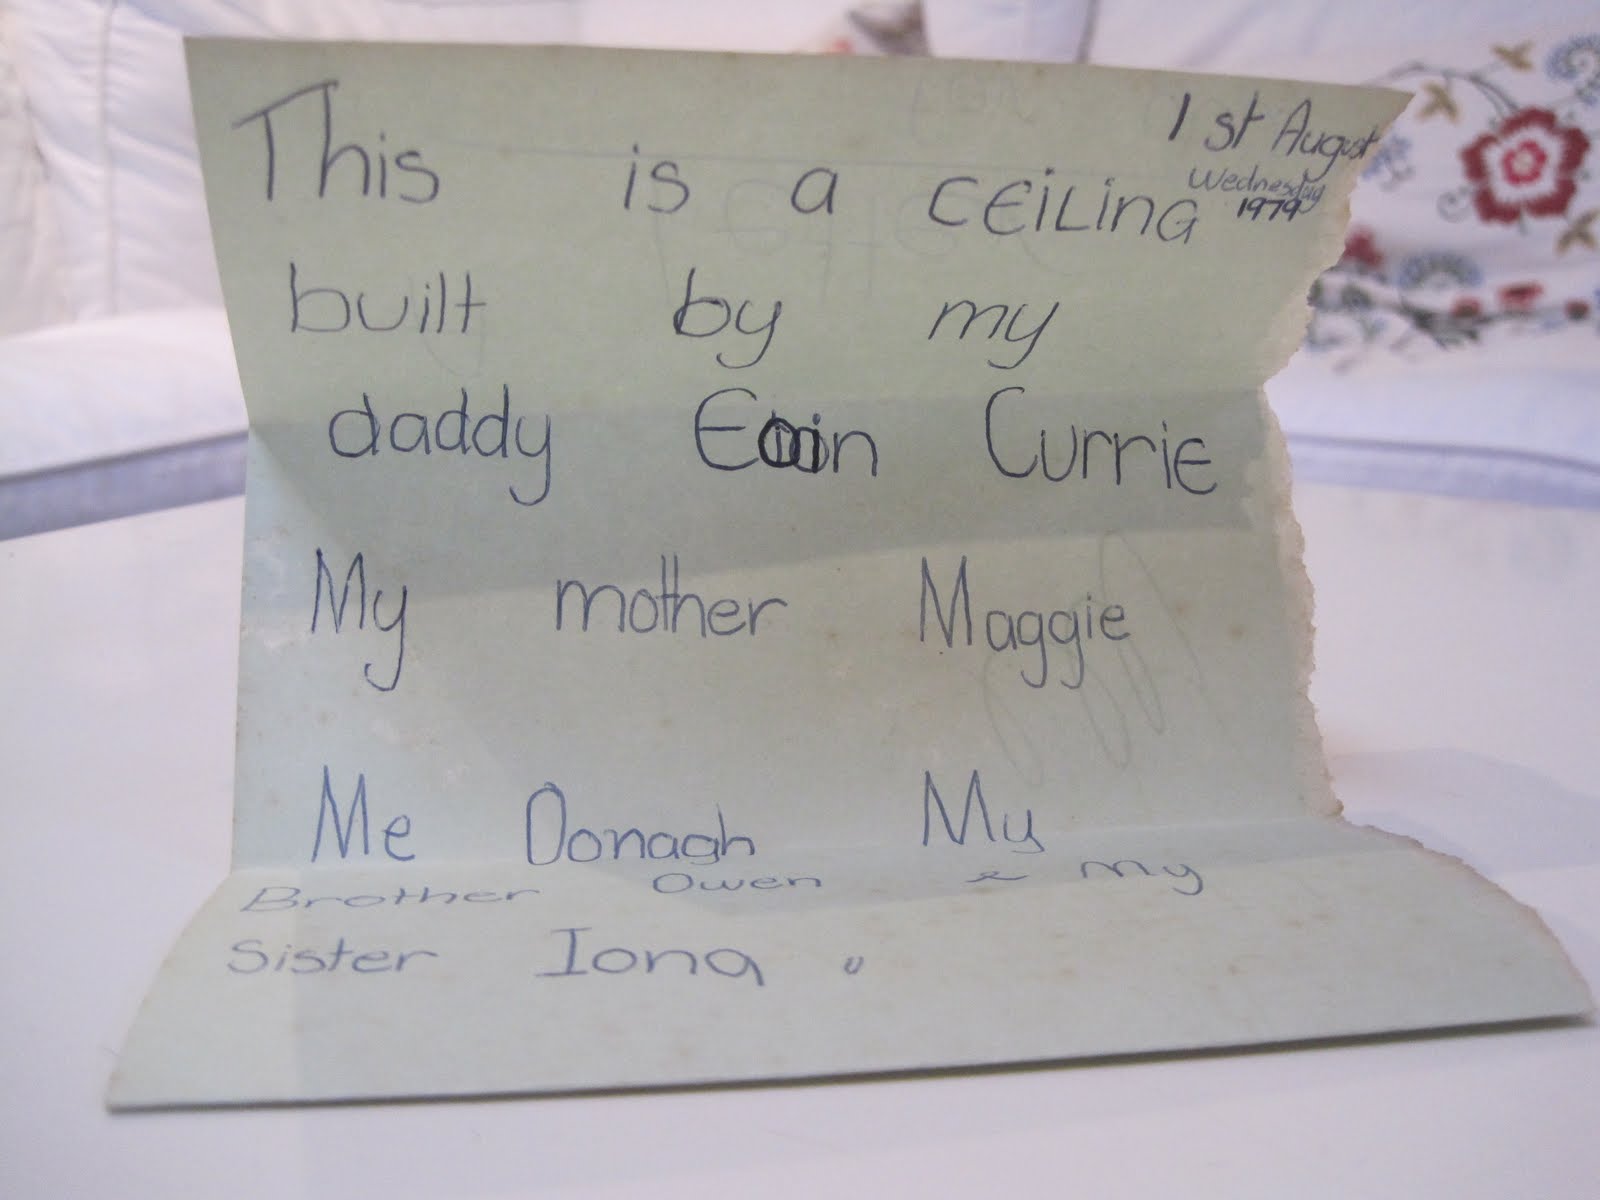 1st August
Wednesday
1979
This is a CEiLinG
built by my
daddy Eoin Currie
My mother Maggie
Me Donagh My
Brother Owen & My
Sister Iona.